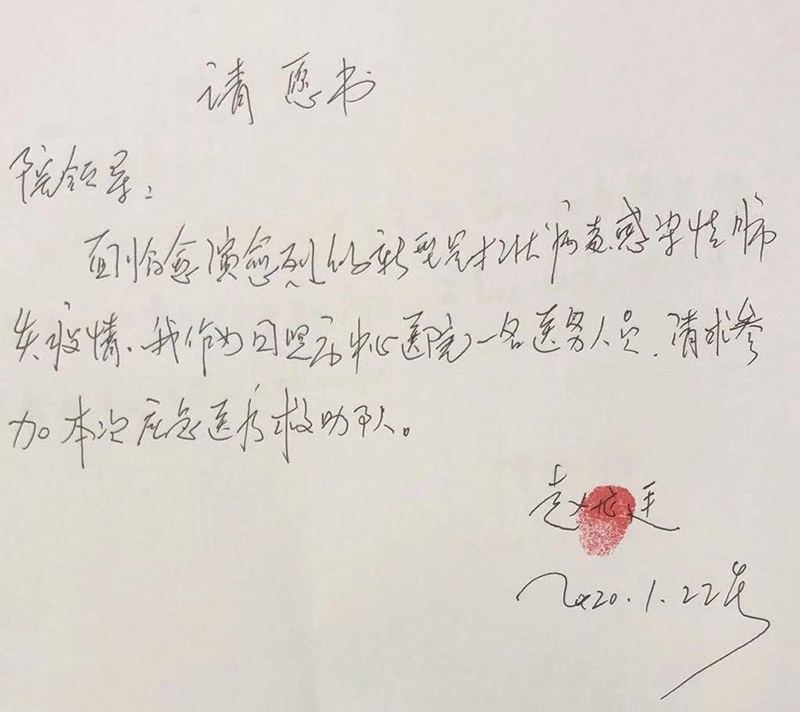 请愿书
院领导：
面临愈演愈烈的新型冠状病毒感染性肺
炎疫情、我作为日照市中心医院一名医务人员，请求参
加本次应急医疗救助队。
赵 廷
2020.1.22号